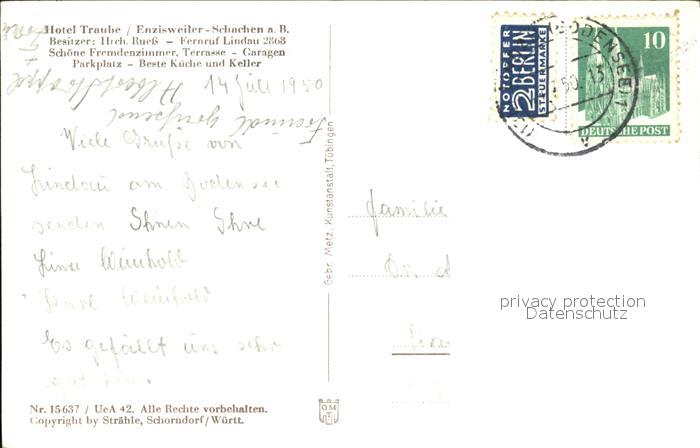 Hotel Traube / Enzisweiler-Schachen a. B.
Besitzer: Hrch. Rueß – Fernruf Lindau 2868
Schöne Fremdenzimmer, Terrasse – Garagen
Parkplatz – Beste Küche und Keller
14 Juli 1950
Viele Grüße von
Lindau am Bodensee
senden Ihnen Ihre
Weinhold
Weinhold
Es gefällt uns sehr
gut
Nr. 15637 / UeA 42. Alle Rechte vorbehalten.
Copyright by Strähle, Schorndorf/Württ.
Gebr. Metz, Kunstanstalt, Tübingen
NOTOPFER
2 BERLIN
STEUERMARKE
10
DEUTSCHE POST
Familie
Dr.
privacy protection
Datenschutz